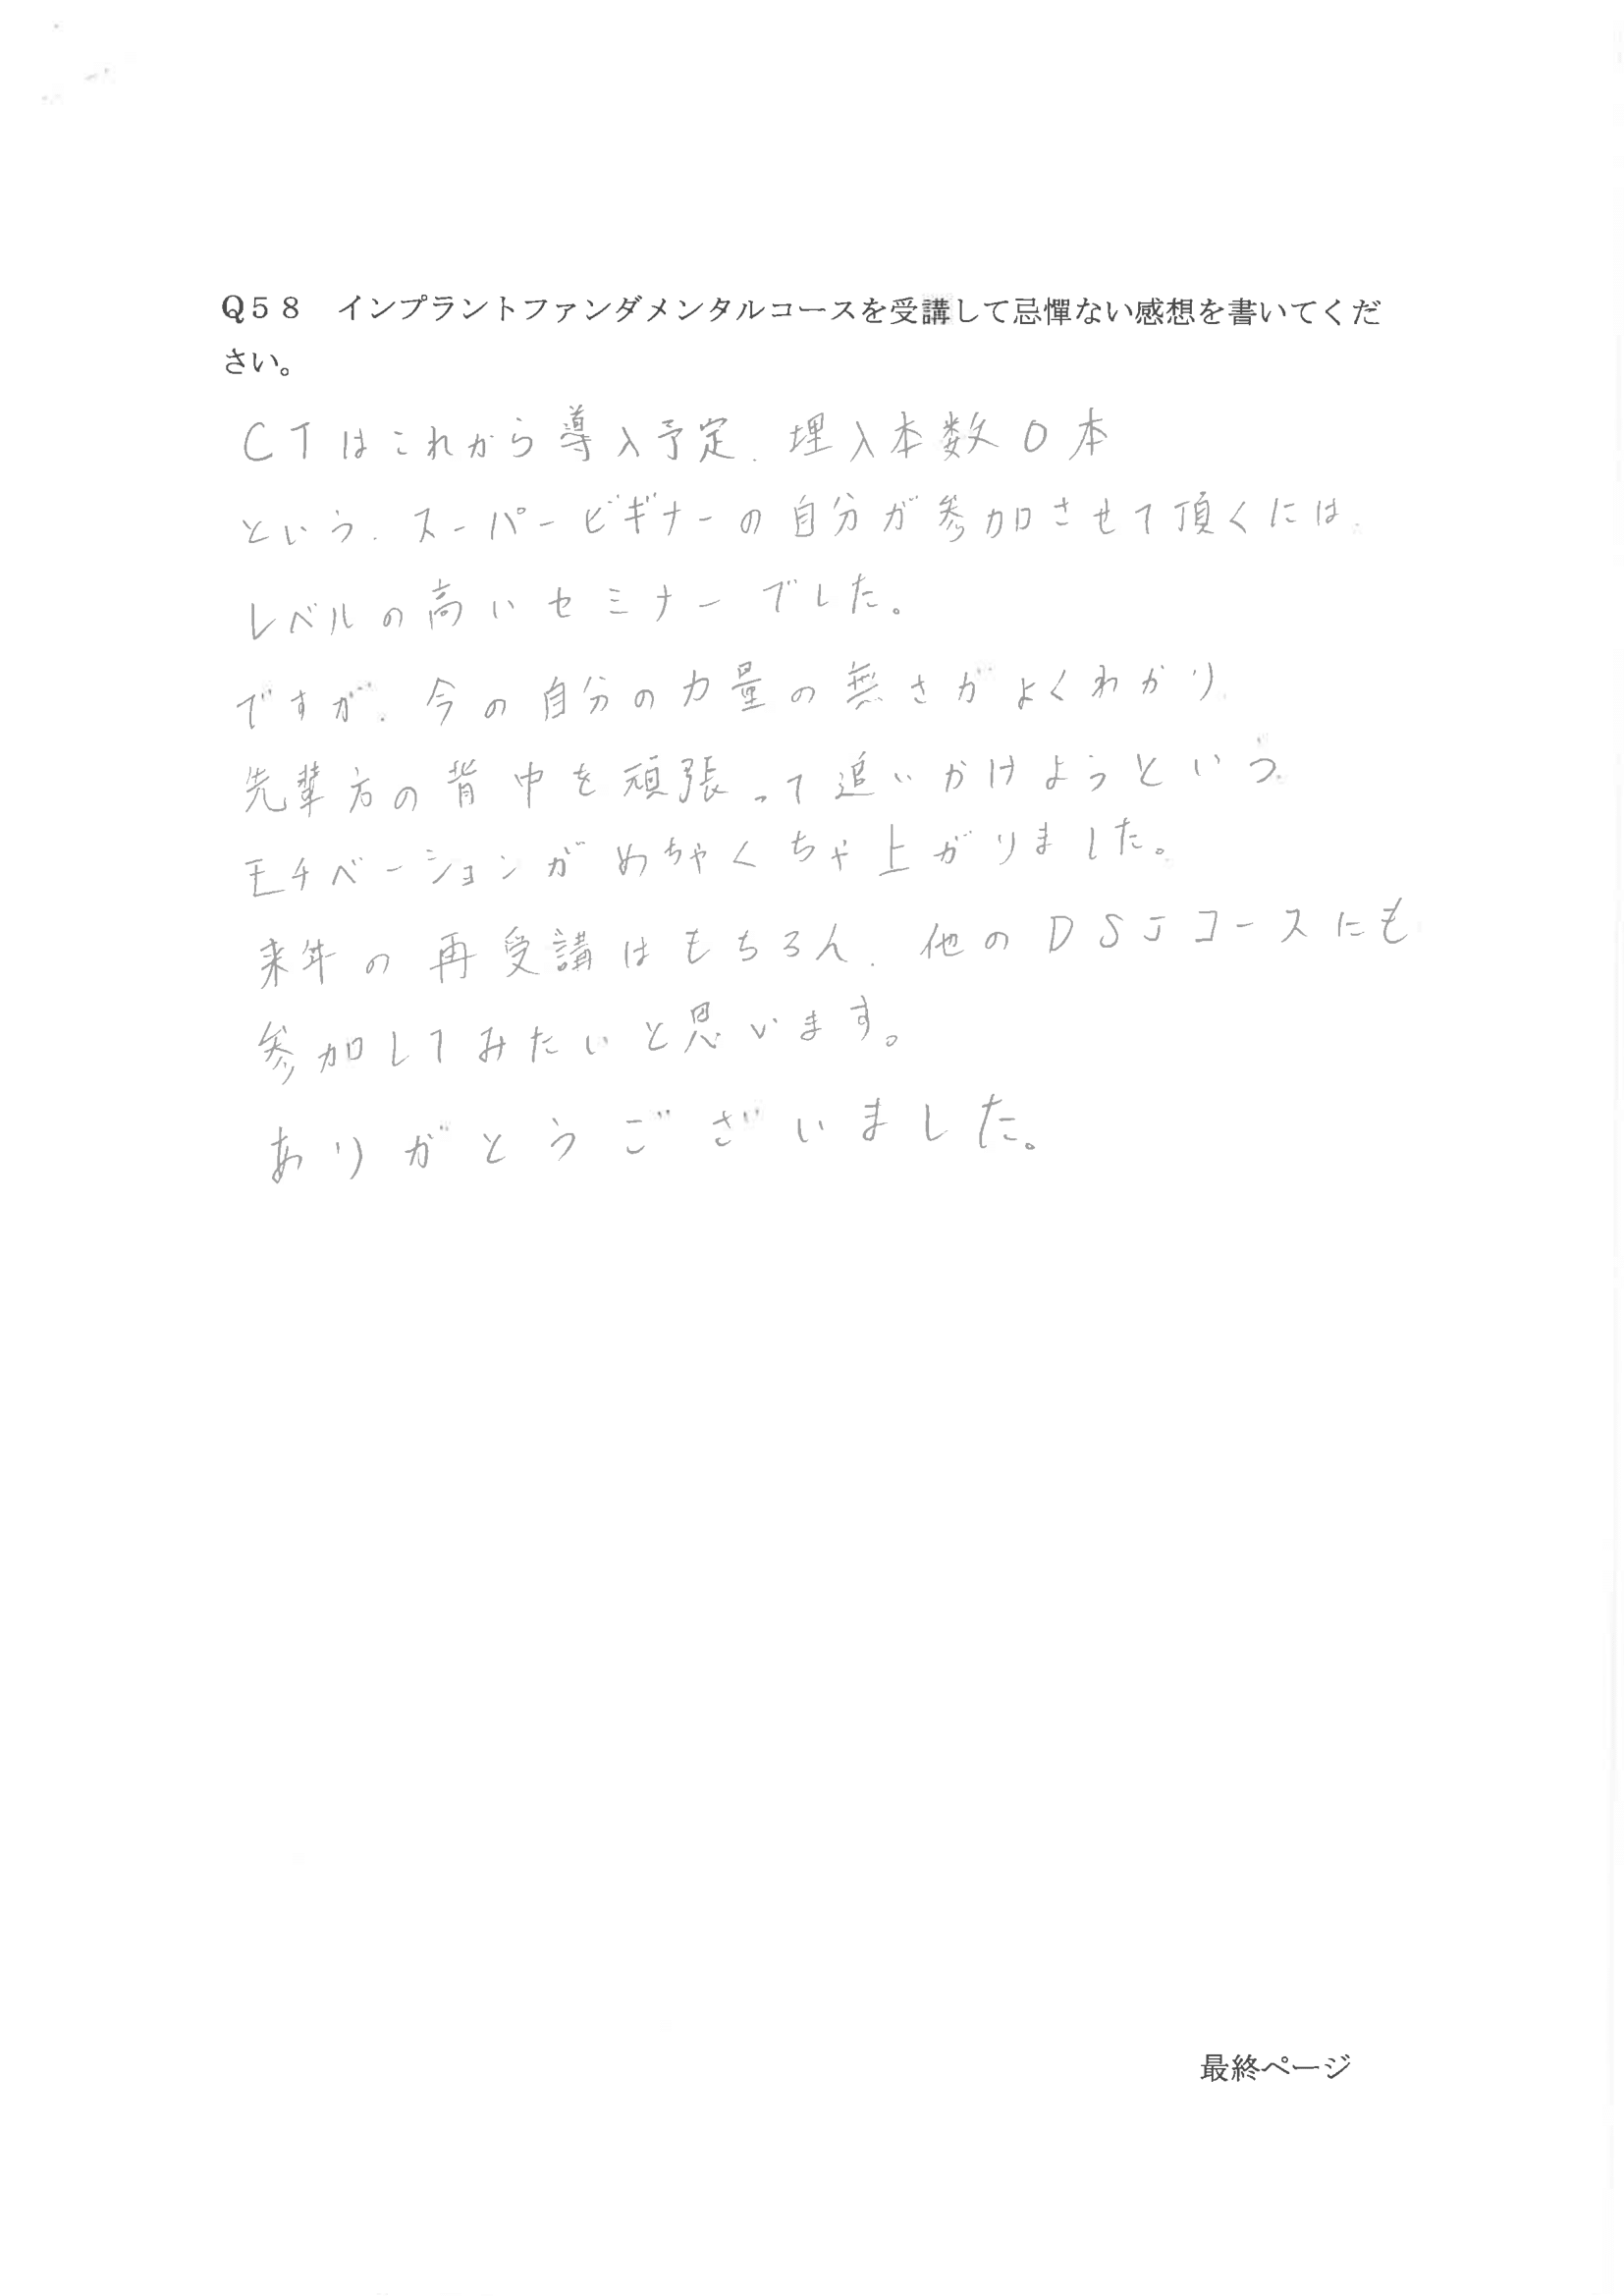 Q58　インプラントファンダメンタルコースを受講して忌憚ない感想を書いてくだ
さい。
CTはこれから導入予定、埋入本数0本
という、スーパービギナーの自分が参加させて頂くには、
レベルの高いセミナーでした。
ですが、今の自分の力量の無さがよくわかり、
先輩方の背中を頑張って追いかけようという
モチベーションがめちゃくちゃ上がりました。
来年の再受講はもちろん、他のDSJコースにも
参加してみたいと思います。
ありがとうございました。
最終ページ